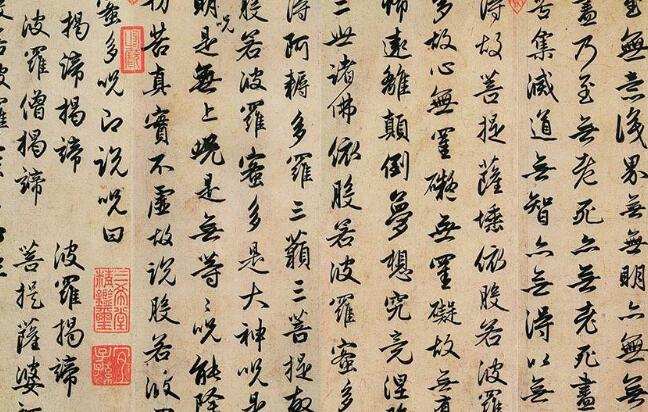 至無意識界無無明亦無無
盡乃至無老死亦無老死盡
苦集滅道無智亦無得以無
得故菩提薩埵依般若波羅
多故心無罣礙無罣礙故無
怖遠離顛倒夢想究竟涅
三世諸佛依般若波羅蜜多
得阿耨多羅三藐三菩提故
般若波羅蜜多是大神呪是
明呪是無上呪是無等〻呪能除
切苦真實不虛故說般若波
蜜多呪即說呪曰
三希堂精鑑璽
宜子孫
揭諦揭諦 波羅揭諦
波羅僧揭諦 菩提薩婆
若波羅